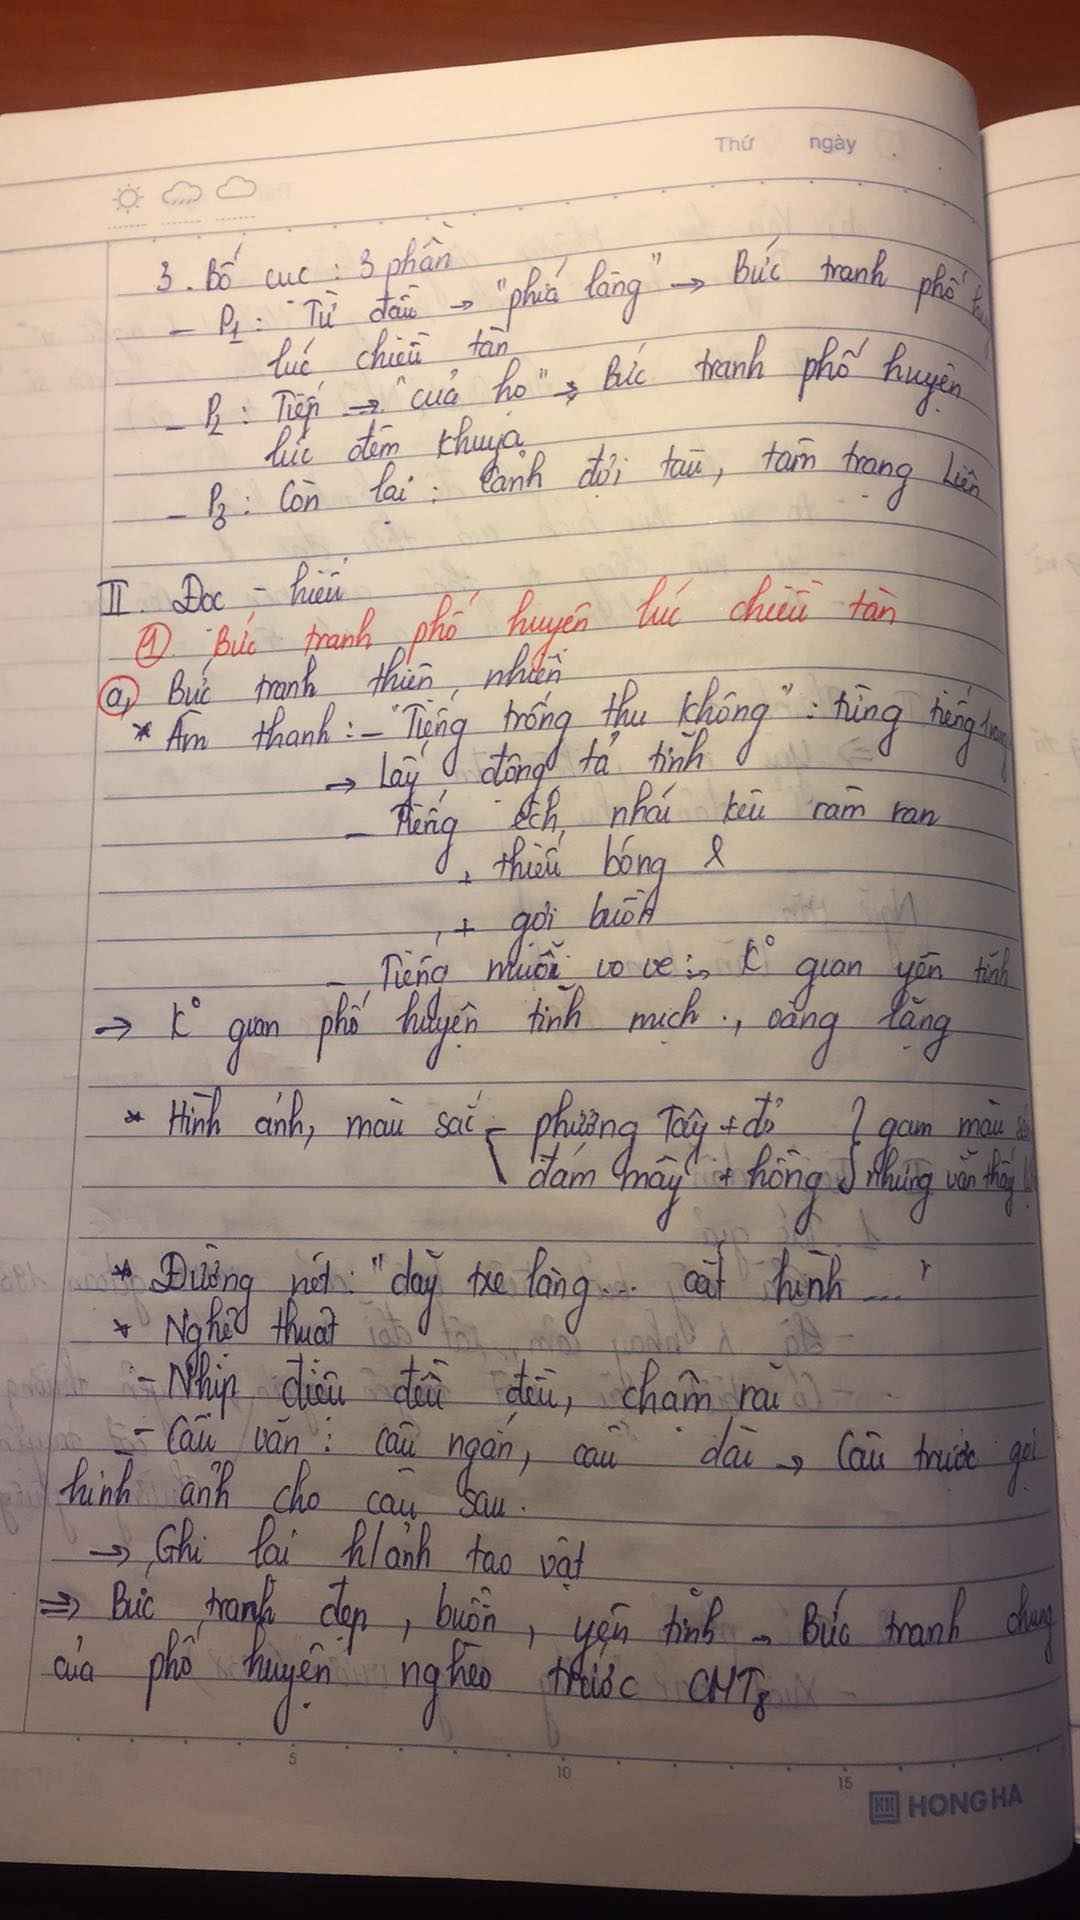 Thứ ngày
3. Bố cục : 3 phần
- P1 : Từ đầu → "phía làng" → Bức tranh phố
lúc chiều tàn
- P2 : Tiếp → "của họ" → Bức tranh phố huyện
lúc đêm khuya
- P3 : Còn lại : Cảnh đợi tàu, tâm trạng Liên
II. Đọc - hiểu
1 Bức tranh phố huyện lúc chiều tàn
a, Bức tranh thiên nhiên
* Âm thanh : - "Tiếng trống thu không" : từng tiếng
→ Lấy động tả tĩnh
- Tiếng ếch nhái kêu ran ran
+ thiếu bóng
+ gợi buồn
- Tiếng muỗi vo ve : → K° gian yên tĩnh
→ K° gian phố huyện tĩnh mịch, vắng lặng
* Hình ảnh, màu sắc - phương Tây + đỏ } gam màu
đám mây + hồng } nhưng vẫn thấy
* Đường nét : "dãy tre làng... cắt hình ...
* Nghệ thuật
- Nhịp điệu đều đều, chậm rãi
- Câu văn : câu ngắn, câu dài → Câu trước gợi
hình ảnh cho câu sau.
→ Ghi lại h/ảnh tạo vật
⇒ Bức tranh đẹp, buồn, yên tĩnh → Bức tranh chung
của phố huyện nghèo trước CMT8
5 10 15
HONG HA